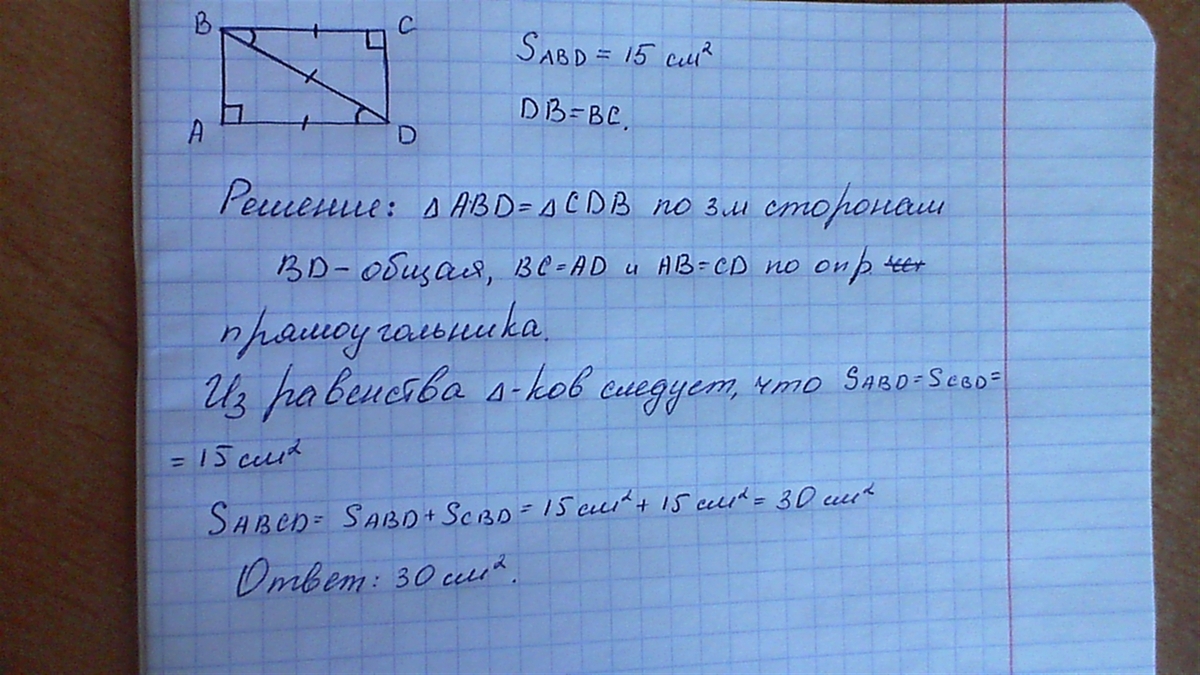 B C
A D
S ABD = 15 см²
DB = BC.
Решение: Δ ABD = Δ CDB по 3м сторонам
BD - общая, BC = AD и AB = CD по опр
прямоугольника.
Из равенства Δ-ков следует, что S ABD = S CBD =
= 15 см²
S ABCD = S ABD + S CBD = 15 см² + 15 см² = 30 см²
Ответ: 30 см².